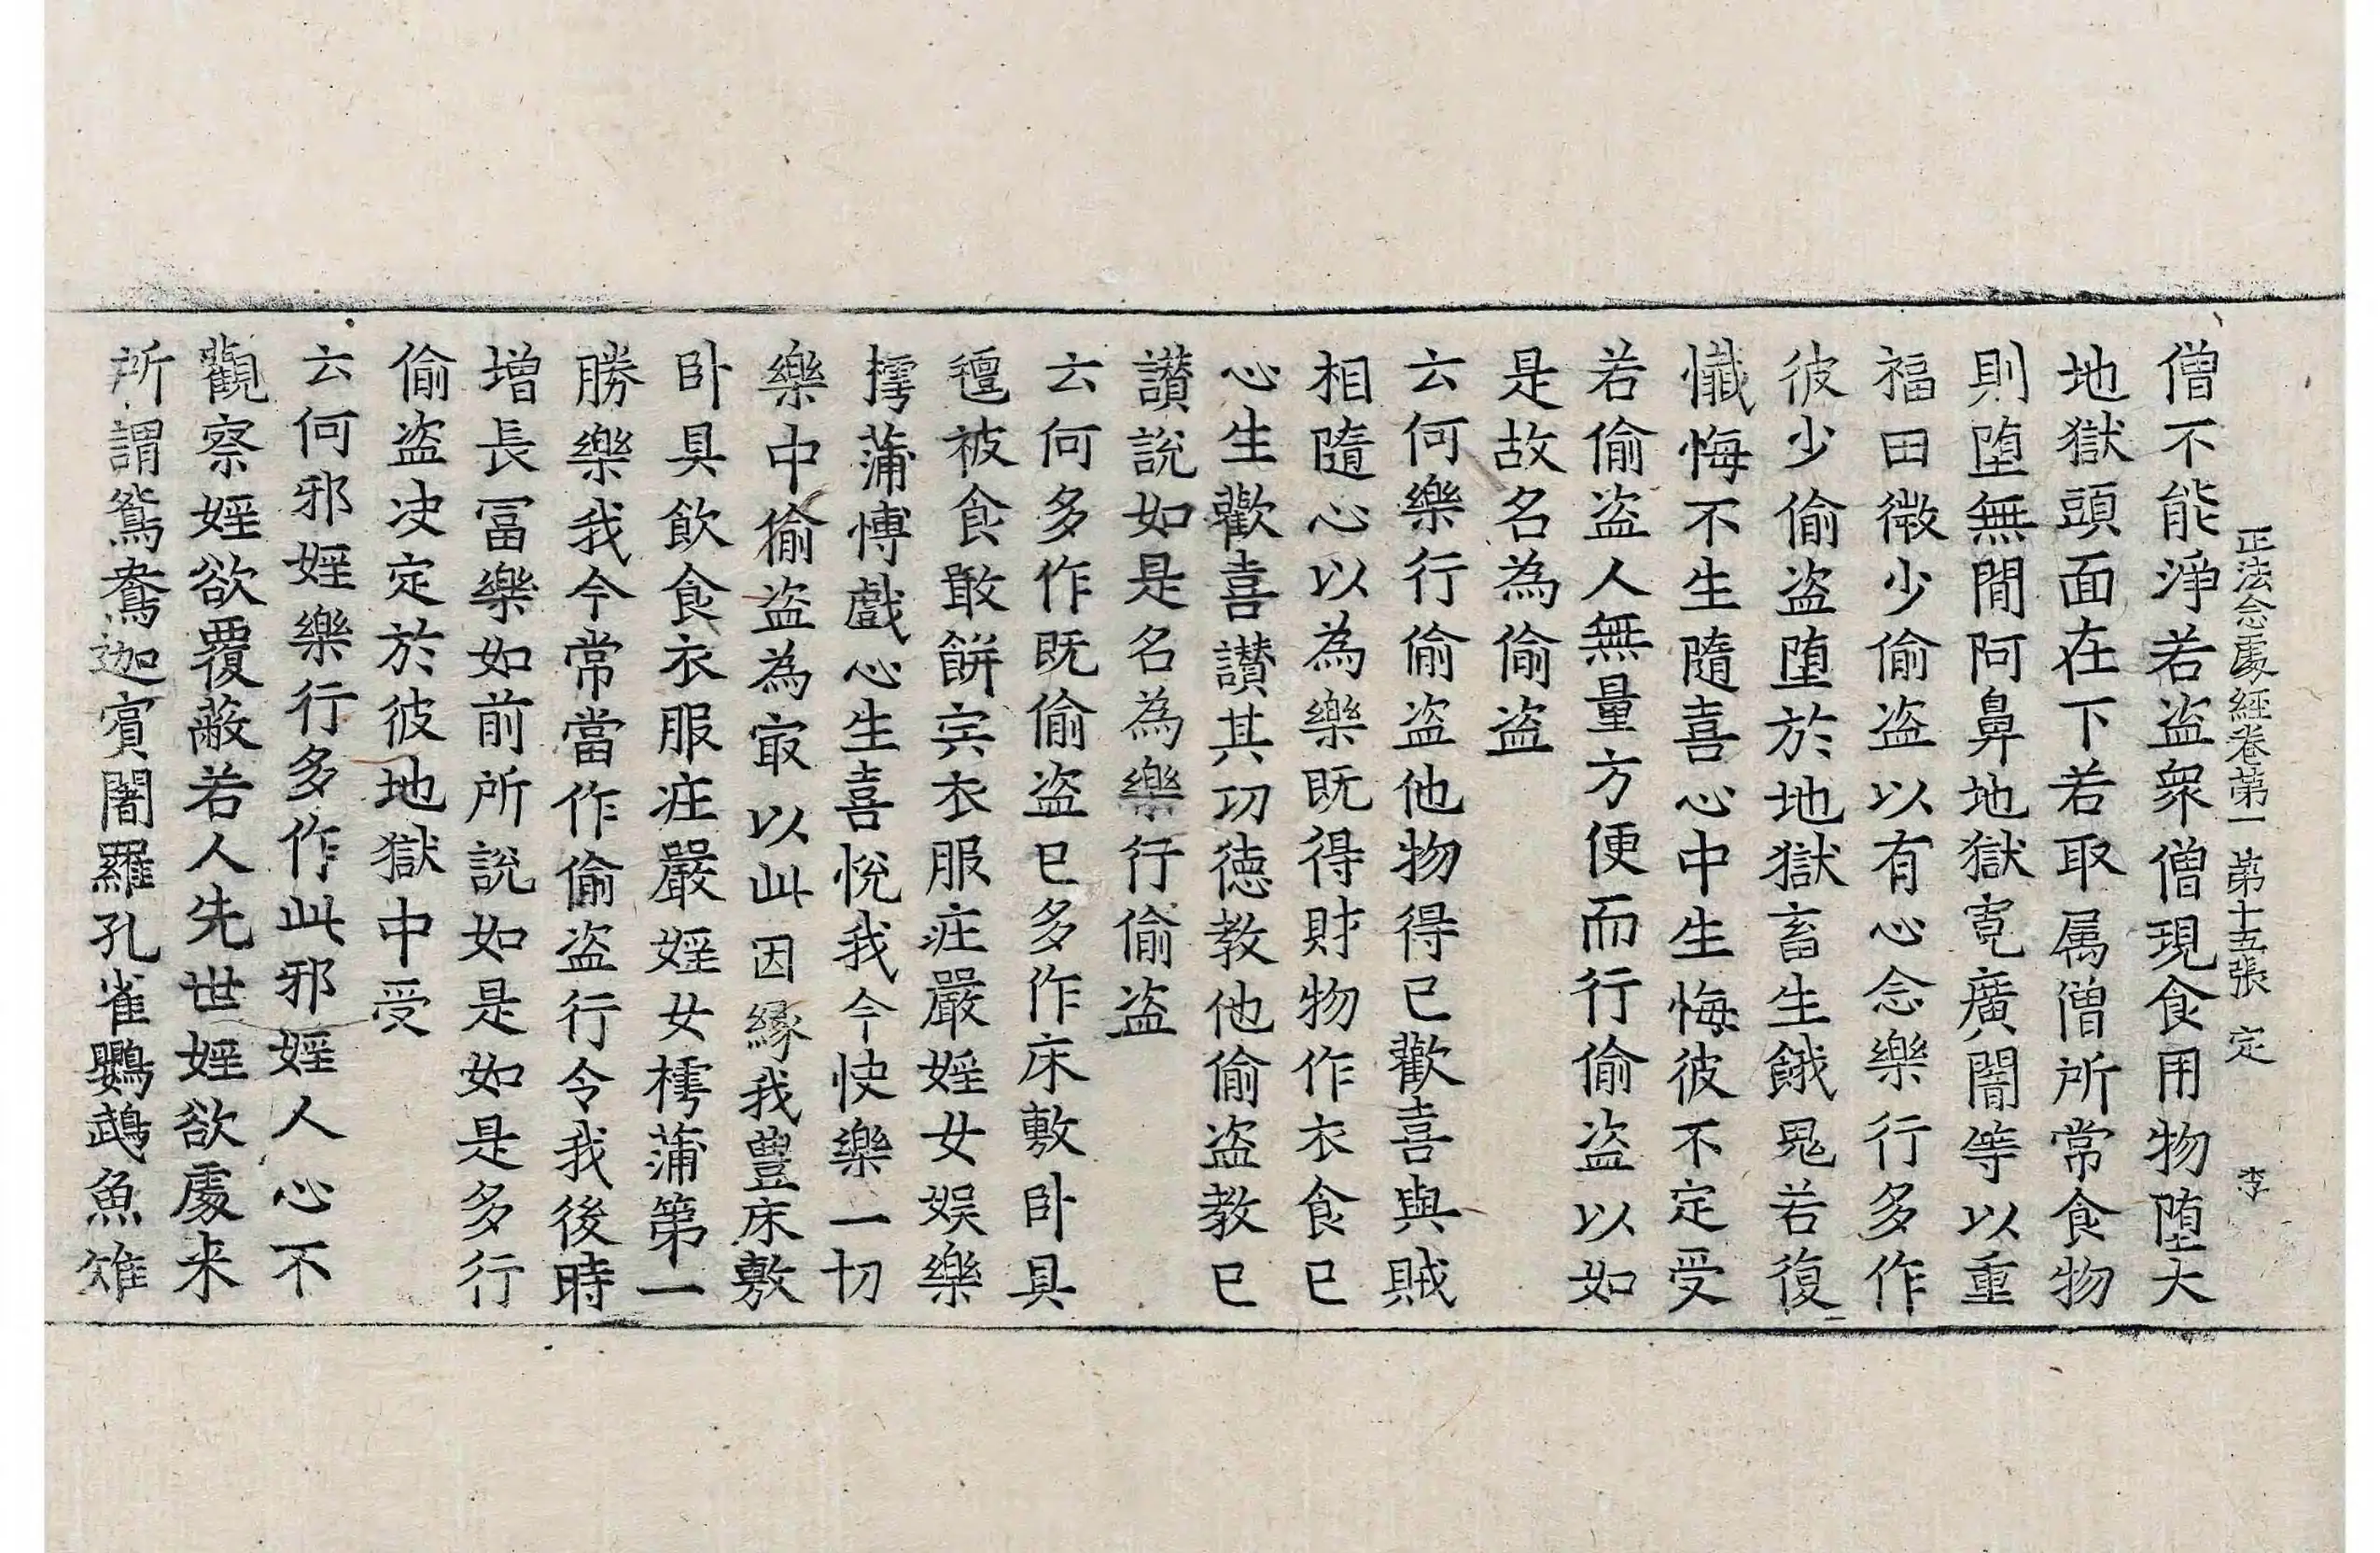 正法念處經卷第一 第十五張 定 李
僧不能淨若盗衆僧現食用物堕大
地獄頭面在下若取属僧所常食物
則堕無間阿鼻地獄寛廣闇等以重
福田微少偷盗以有心念樂行多作
彼少偷盗堕於地獄畜生餓鬼若復
懺悔不生隨喜心中生悔彼不定受
若偷盗人無量方便而行偷盗以如
是故名為偷盗
云何樂行偷盗他物得已歡喜與賊
相隨心以為樂既得財物作衣食已
心生歡喜讃其功徳教他偷盗教已
讃說如是名為樂行偷盗
云何多作既偷盗已多作床敷卧具
氊被食噉餅宍衣服疘嚴婬女娱樂
摴蒲愽戲心生喜悅我今快樂一切
樂中偷盗為㝡以此因縁我豊床敷
卧具飲食衣服疘嚴婬女樗蒲第一
勝樂我今常當作偷盗行令我後時
增長冨樂如前所說如是如是多行
偷盗决定於彼地獄中受
云何邪婬樂行多作此邪婬人心不
觀察婬欲覆蔽若人先世婬欲處来
所謂鴛鴦迦賓闍羅孔雀鸚鵡魚雉